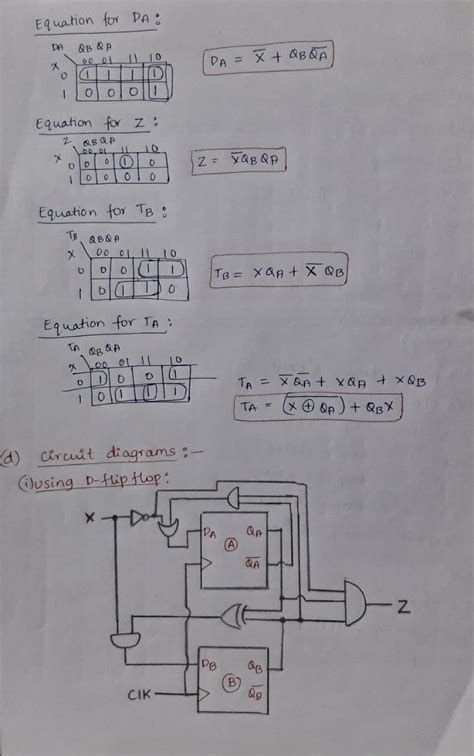 Equation for DA :
DA QB QA
X 00 01 11 10
0 1 1 1 1
1 0 0 0 1
DA = X̅ + QB Q̅A̅
Equation for Z :
Z QB QA
X 00 01 11 10
0 0 0 1 0
1 0 0 0 0
Z = X̅ QB QA
Equation for TB :
TB QB QA
X 00 01 11 10
0 0 0 1 1
1 0 1 1 0
TB = X QA + X̅ QB
Equation for TA :
TA QB QA
X 00 01 11 10
0 1 0 0 1
1 0 1 1 1
TA = X̅ Q̅A̅ + X QA + X QB
TA = (X ⊕ QA)‾ + QB X
(d) Circuit diagrams :-
(i) using D-flip flop :
X
DA QA
A
Q̅A̅
Z
DB QB
B
CLK
Q̅B̅